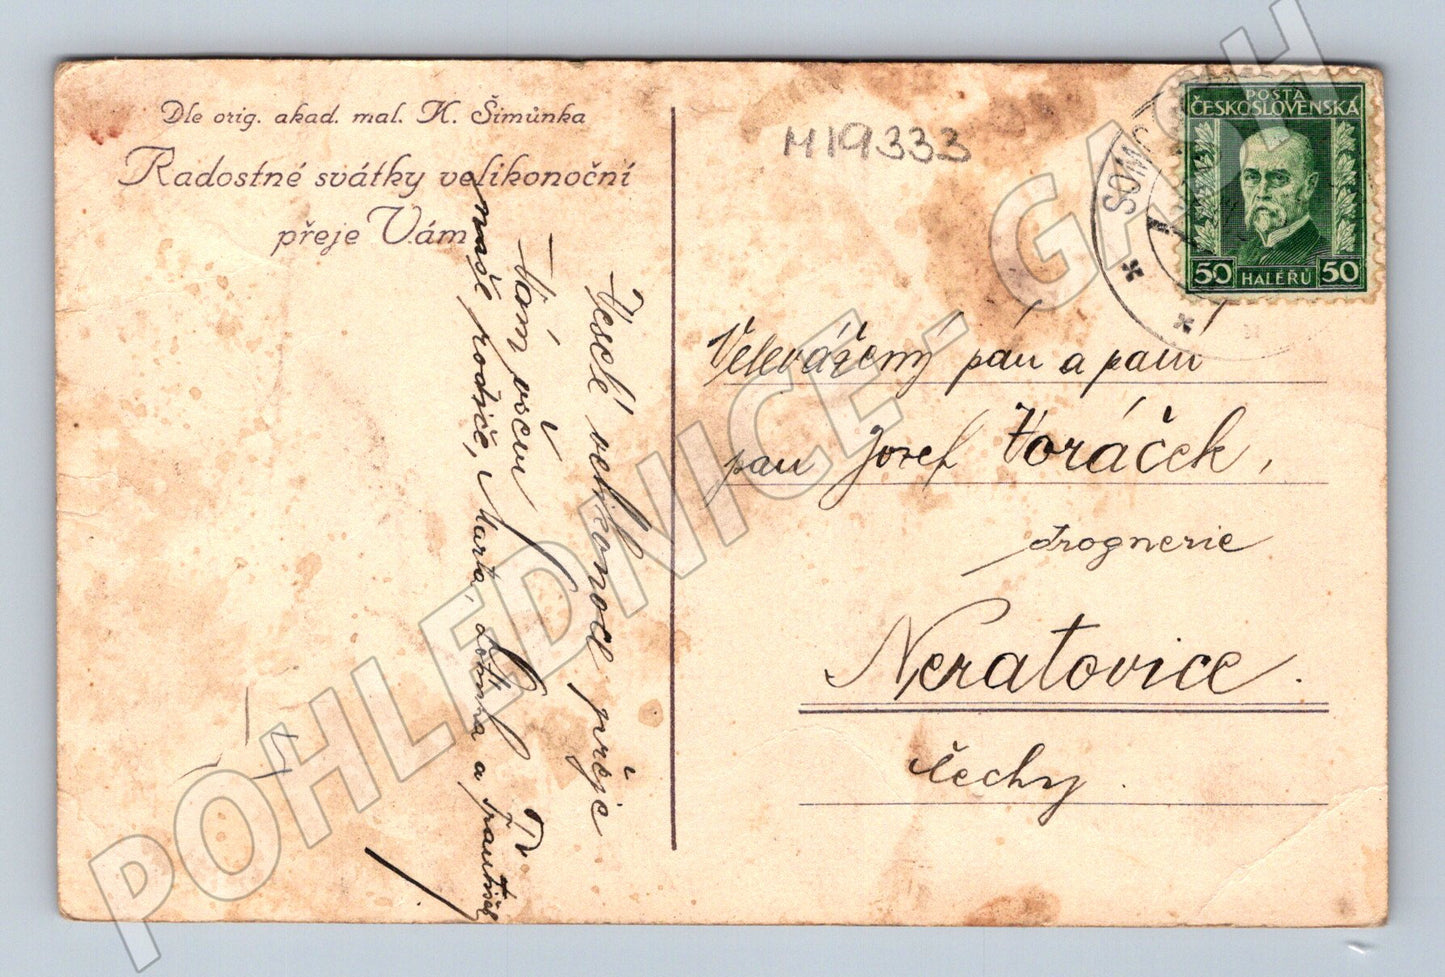 Dle orig. akad. mal. K. Šimůnka
Radostné svátky velikonoční
přeje Vám
Veselé velikonoce přeje
Vám všem
naše rodiče, Marta, a František
M19333
POŠTA
ČESKOSLOVENSKÁ
50 HALÉŘŮ 50
Velevážený pán a paní
pan Josef Voráček,
drognerie
Neratovice.
Čechy.
POHLEDNICE - GASH